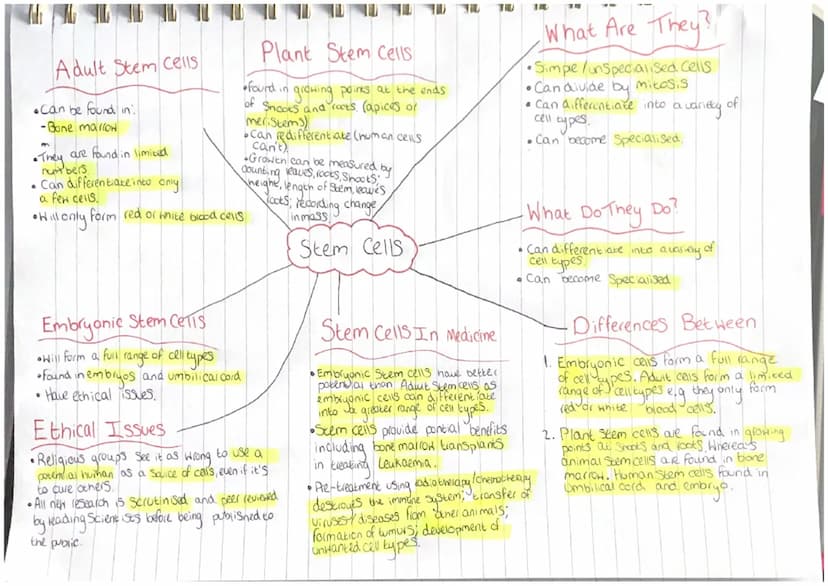 Adult Stem Cells
• Can be found in:
- Bone marrow
• They are found in limited
numbers
• Can differentiate into only
a few cells.
• Will only form red or white blood cells
Plant Stem Cells
• Found in growing points at the ends
of shoots and roots (apices or
meristems)
• Can redifferentiate (human cells
can't).
• Growth can be measured by
counting leaves, roots, shoots;
height, length of stem, leaves
roots; recording change
in mass
What Are They?
• Simple/unspecialised cells
• Can divide by mitosis
• Can differentiate into a variety of
cell types.
• Can become specialised
Stem Cells
What Do They Do?
• Can differentiate into a variety of
cell types
• Can become specialised
Embryonic Stem Cells
• Will form a full range of cell types
• Found in embryos and umbilical cord
• Have ethical issues.
Ethical Issues
• Religious groups see it as wrong to use a
potential human as a source of cells, even if it's
to cure others.
• All new research is scrutinised and peer reviewed
by leading scientists before being published to
the public.
Stem Cells In Medicine
• Embryonic stem cells have better
potential than Adult stem cells as
embryonic cells can differentiate
into a greater range of cell types.
• Stem cells provide potential benefits
including bone marrow transplants
in treating leukaemia.
• Pre-treatment using radiotherapy/chemotherapy
destroys the immune system; transfer of
viruses/diseases from other animals;
formation of tumurs; development of
unwanted cell types.
Differences Between
1. Embryonic cells form a full range
of cell types. Adult cells form a limited
range of cell types e.g they only form
red or white blood cells.
2. Plant stem cells are found in growing
points as shoots and roots. Whereas
animal stem cells are found in bone
marrow. Human stem cells found in
umbilical cord and embryo.